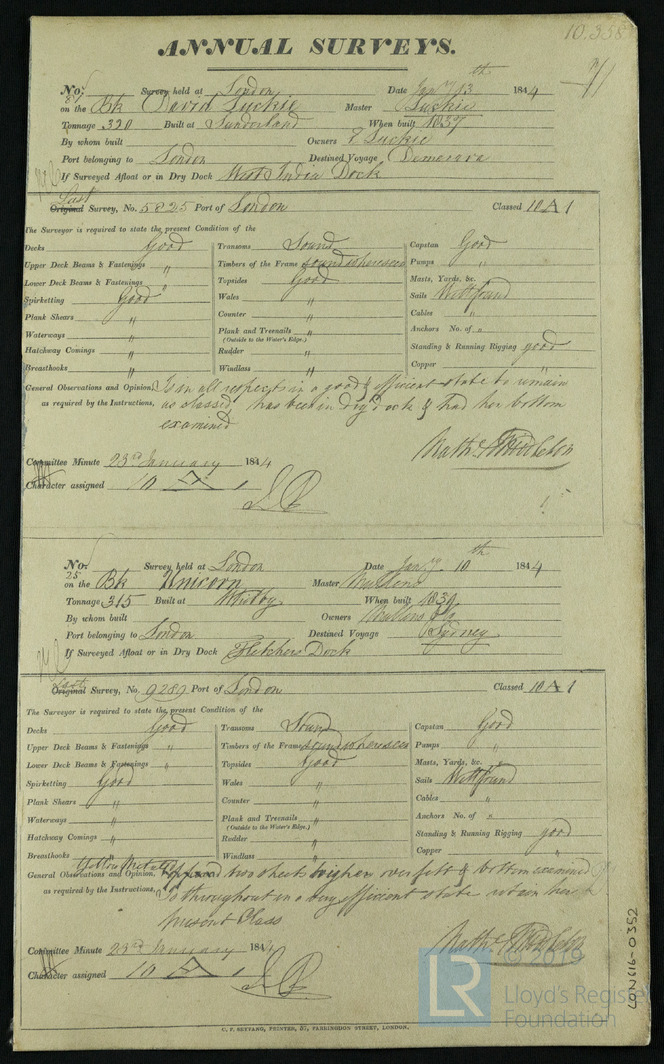 10.358
ANNUAL SURVEYS.
No. 87 Survey held at London Date Jany 13th 1844
on the Bk David Luckie Master Luckie
Tonnage 320 Built at Sunderland When built 1837
By whom built Owners Luckie
Port belonging to London Destined Voyage Demerara
If Surveyed Afloat or in Dry Dock West India Dock
Last
Original Survey, No. 5825 Port of London Classed 10 A 1
The Surveyor is required to state the present Condition of the
Decks Good Transoms Sound Capstan Good
Upper Deck Beams & Fastenings " Timbers of the Frame sound where seen Pumps "
Lower Deck Beams & Fastenings " Topsides Good Masts, Yards, &c. "
Spirketting Good Wales " Sails Well found
Plank Shears " Counter " Cables "
Waterways " Plank and Treenails " Anchors No. of "
(Outside to the Water's Edge.)
Hatchway Comings " Rudder " Standing & Running Rigging good
Breasthooks " Windlass " Copper "
General Observations and Opinion, Is in all respects in a good & efficient state to remain
as required by the Instructions, as classed, has been in dry dock & had her bottom
examined
Nathl Middleton
Committee Minute 23rd January 1844
Character assigned 10 A 1
No. 25 Survey held at London Date Jany 10th 1844
on the Bk Unicorn Master
Tonnage 315 Built at Whitby When built
By whom built Owners
Port belonging to London Destined Voyage Sydney
If Surveyed Afloat or in Dry Dock Fletchers Dock
Last
Original Survey, No. 9289 Port of London Classed 10 A 1
The Surveyor is required to state the present Condition of the
Decks Good Transoms Sound Capstan Good
Upper Deck Beams & Fastenings " Timbers of the Frame sound where seen Pumps "
Lower Deck Beams & Fastenings " Topsides Good Masts, Yards, &c. "
Spirketting Good Wales " Sails Well found
Plank Shears " Counter " Cables "
Waterways " Plank and Treenails " Anchors No. of "
(Outside to the Water's Edge.)
Hatchway Comings " Rudder " Standing & Running Rigging good
Breasthooks " Windlass " Copper "
Yellow Metalled
General Observations and Opinion, two sheets higher over felt & bottom examined
as required by the Instructions, Is throughout in a very efficient state retain her
present Class
Nathl Middleton
Committee Minute 23rd January 1844
Character assigned 10 A 1
LR
© 2019
Lloyd's Register
Foundation
LON616-0352
C. F. SEYFANG, PRINTER, 57, FARRINGDON STREET, LONDON.